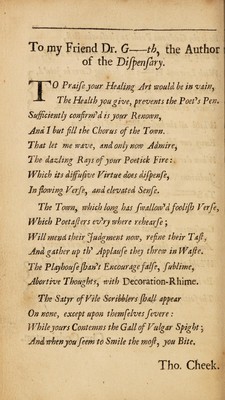 To my Friend Dr. G——th, the Author
of the Diſpenſary.
TO Praiſe your Healing Art would be in vain,
The Health you give, prevents the Poet's Pen.
Sufficiently confirm'd is your Renown,
And I but fill the Chorus of the Town.
That let me wave, and only now Admire,
The dazling Rays of your Poetick Fire:
Which its diffuſive Virtue does diſpenſe,
In flowing Verſe, and elevated Senſe.
The Town, which long has ſwallow'd fooliſh Verſe,
Which Poetaſters ev'ry where rehearſe;
Will mend their Judgment now, refine their Taſt,
And gather up th' Applauſe they threw in Waſte.
The Playhouſe ſhan't Encourage falſe, ſublime,
Abortive Thoughts, with Decoration-Rhime.
The Satyr of Vile Scribblers ſhall appear
On none, except upon themſelves ſevere:
While yours Contemns the Gall of Vulgar Spight;
And when you ſeem to Smile the moſt, you Bite.
Tho. Cheek.